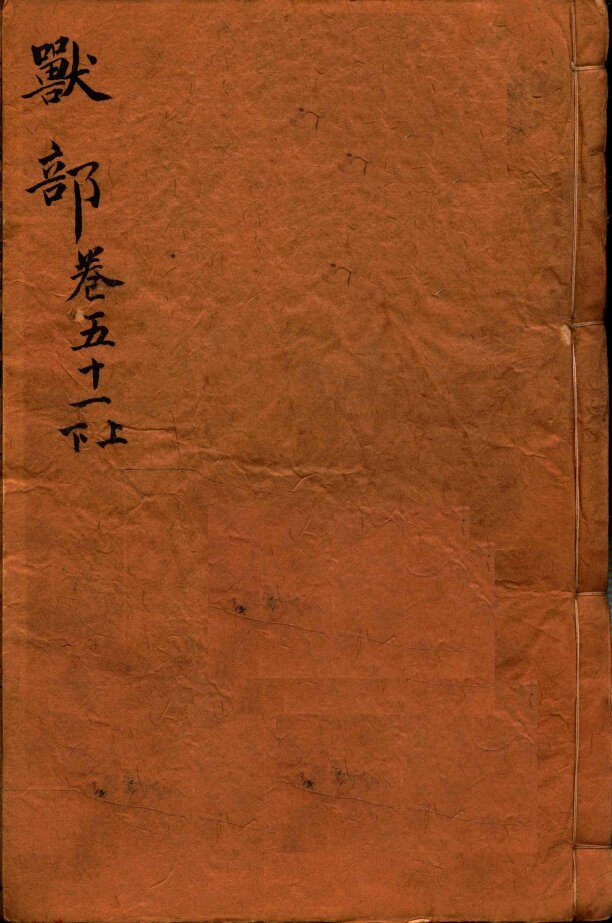 獸部卷五十一上下